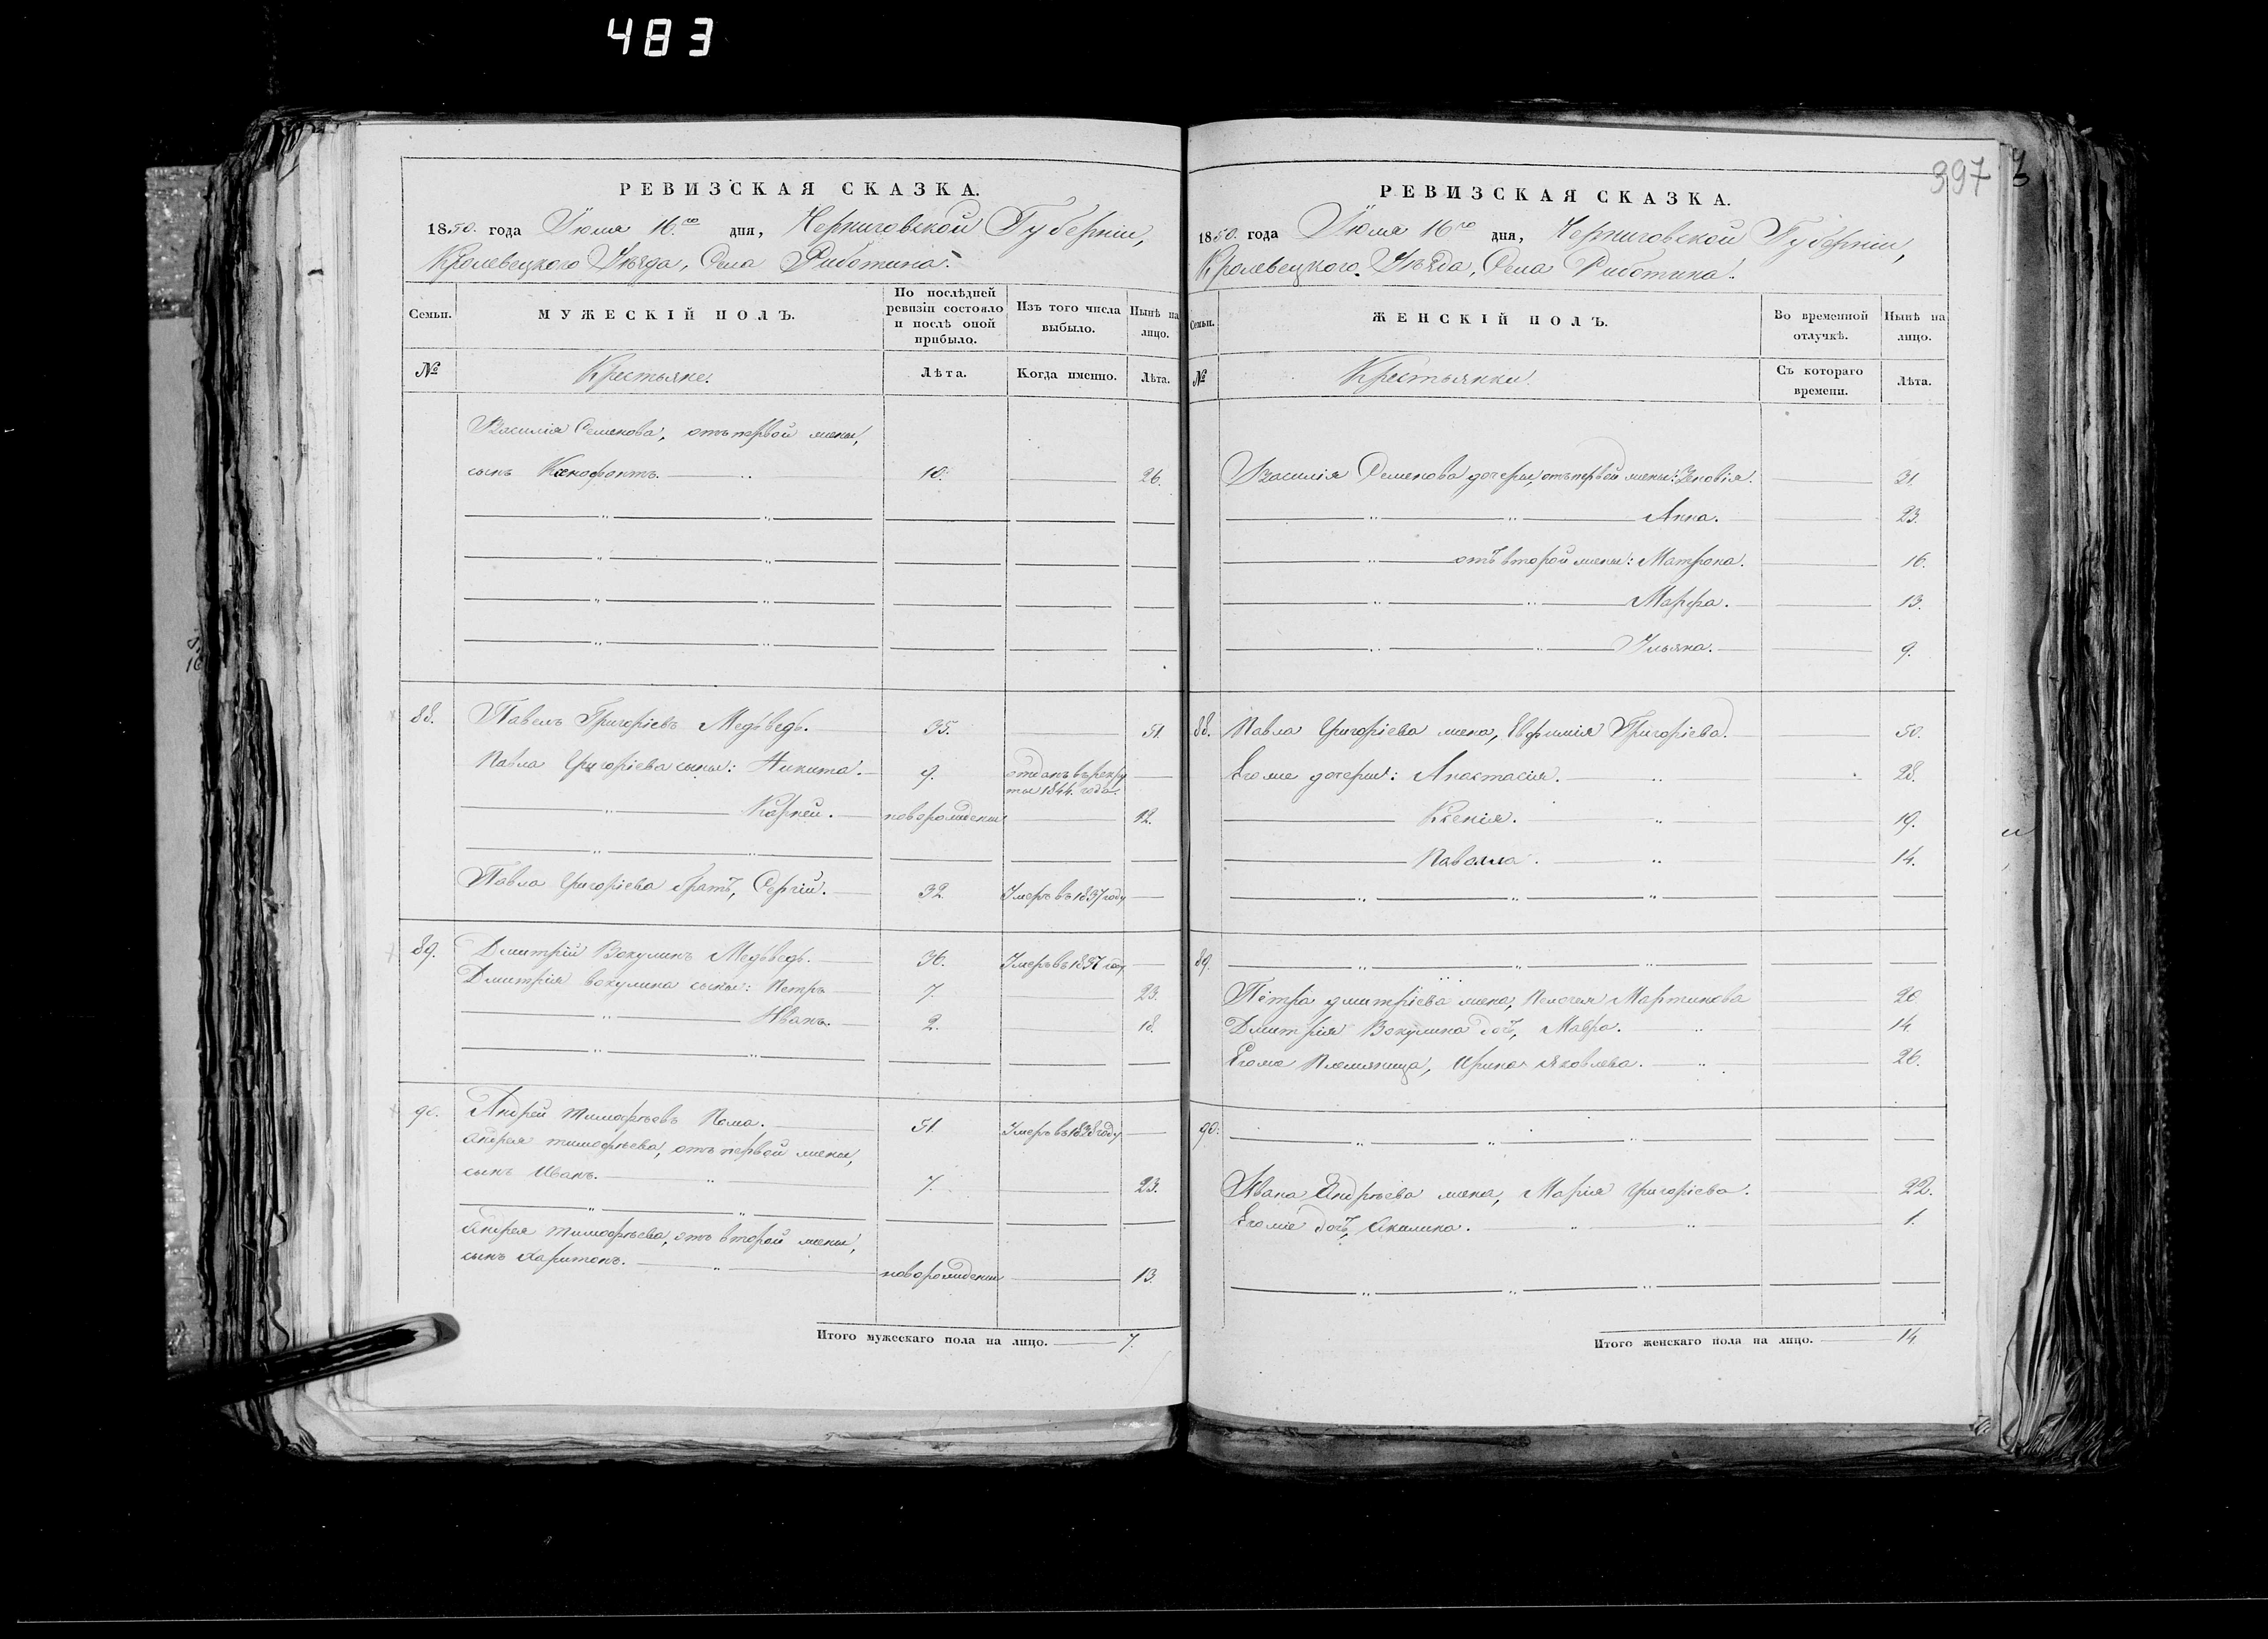 483
РЕВИЗСКАЯ СКАЗКА.
1850. года Іюля 16.го дня, Черниговской Губерніи,
Кролевецкого Уѣзда, Села Риботина.
Семьи.
МУЖЕСКІЙ ПОЛЪ.
По послѣдней ревизіи состояло и послѣ оной прибыло.
Изъ того числа выбыло.
Нынѣ на лицо.
№
Крестьяне.
Лѣта.
Когда именно.
Лѣта.
Василія Семенова, отъ первой жены,
сынъ Ксенофонтъ. 10. 26.
88. Павелъ Григоріевъ Медьведь. 35. 51.
Павла Григоріева сыны: Никита. 9. отданъ въ рекру
ты 1844. года.
Корней. новорожденны 12.
Павла Григоріева братъ, Сергій. 32. Умеръ въ 1837 году
89. Дмитрій Вокулинъ Медьведь. 36. Умеръ въ 1837 году
Дмитрія Вокулина сыны: Петръ 7. 23.
Иванъ. 2. 18.
90. Андрей Тимофѣевъ Кома. 51. Умеръ въ 1838 году
Андрея Тимофѣева, отъ первой жены,
сынъ Иванъ. 7. 23.
Андрея Тимофѣева, отъ второй жены,
сынъ Харитонъ. новорожденны 13.
Итого мужескаго пола на лицо. 7.
397
РЕВИЗСКАЯ СКАЗКА.
1850. года Іюля 16го дня, Черниговской Губерніи,
Кролевецкого Уѣзда, Села Риботина.
Семьи.
ЖЕНСКІЙ ПОЛЪ.
Во временной отлучкѣ.
Нынѣ на лицо.
№
Крестьянки.
Съ котораго времени.
Лѣта.
Василія Семенова дочери, отъ первой жены: Зеновія. 31.
Анна. 23.
отъ второй жены: Матрона. 16.
Марфа. 13.
Ульяна. 9.
88. Павла Григоріева жена, Евфимія Григоріева. 50.
Егоже дочери: Анастасія. 28.
Ксенія. 19.
Паволла. 14.
89.
Петра Дмитріева жена, Пелагея Мартинова 20
Дмитрія Вокулина дочъ, Мавра. 14.
Егоже Племяница, Ирина Яковлева. 26.
90.
Ивана Андрѣева жена, Марія Григоріева. 22.
Егоже дочъ, Акилина. 1.
Итого женскаго пола на лицо. 14.